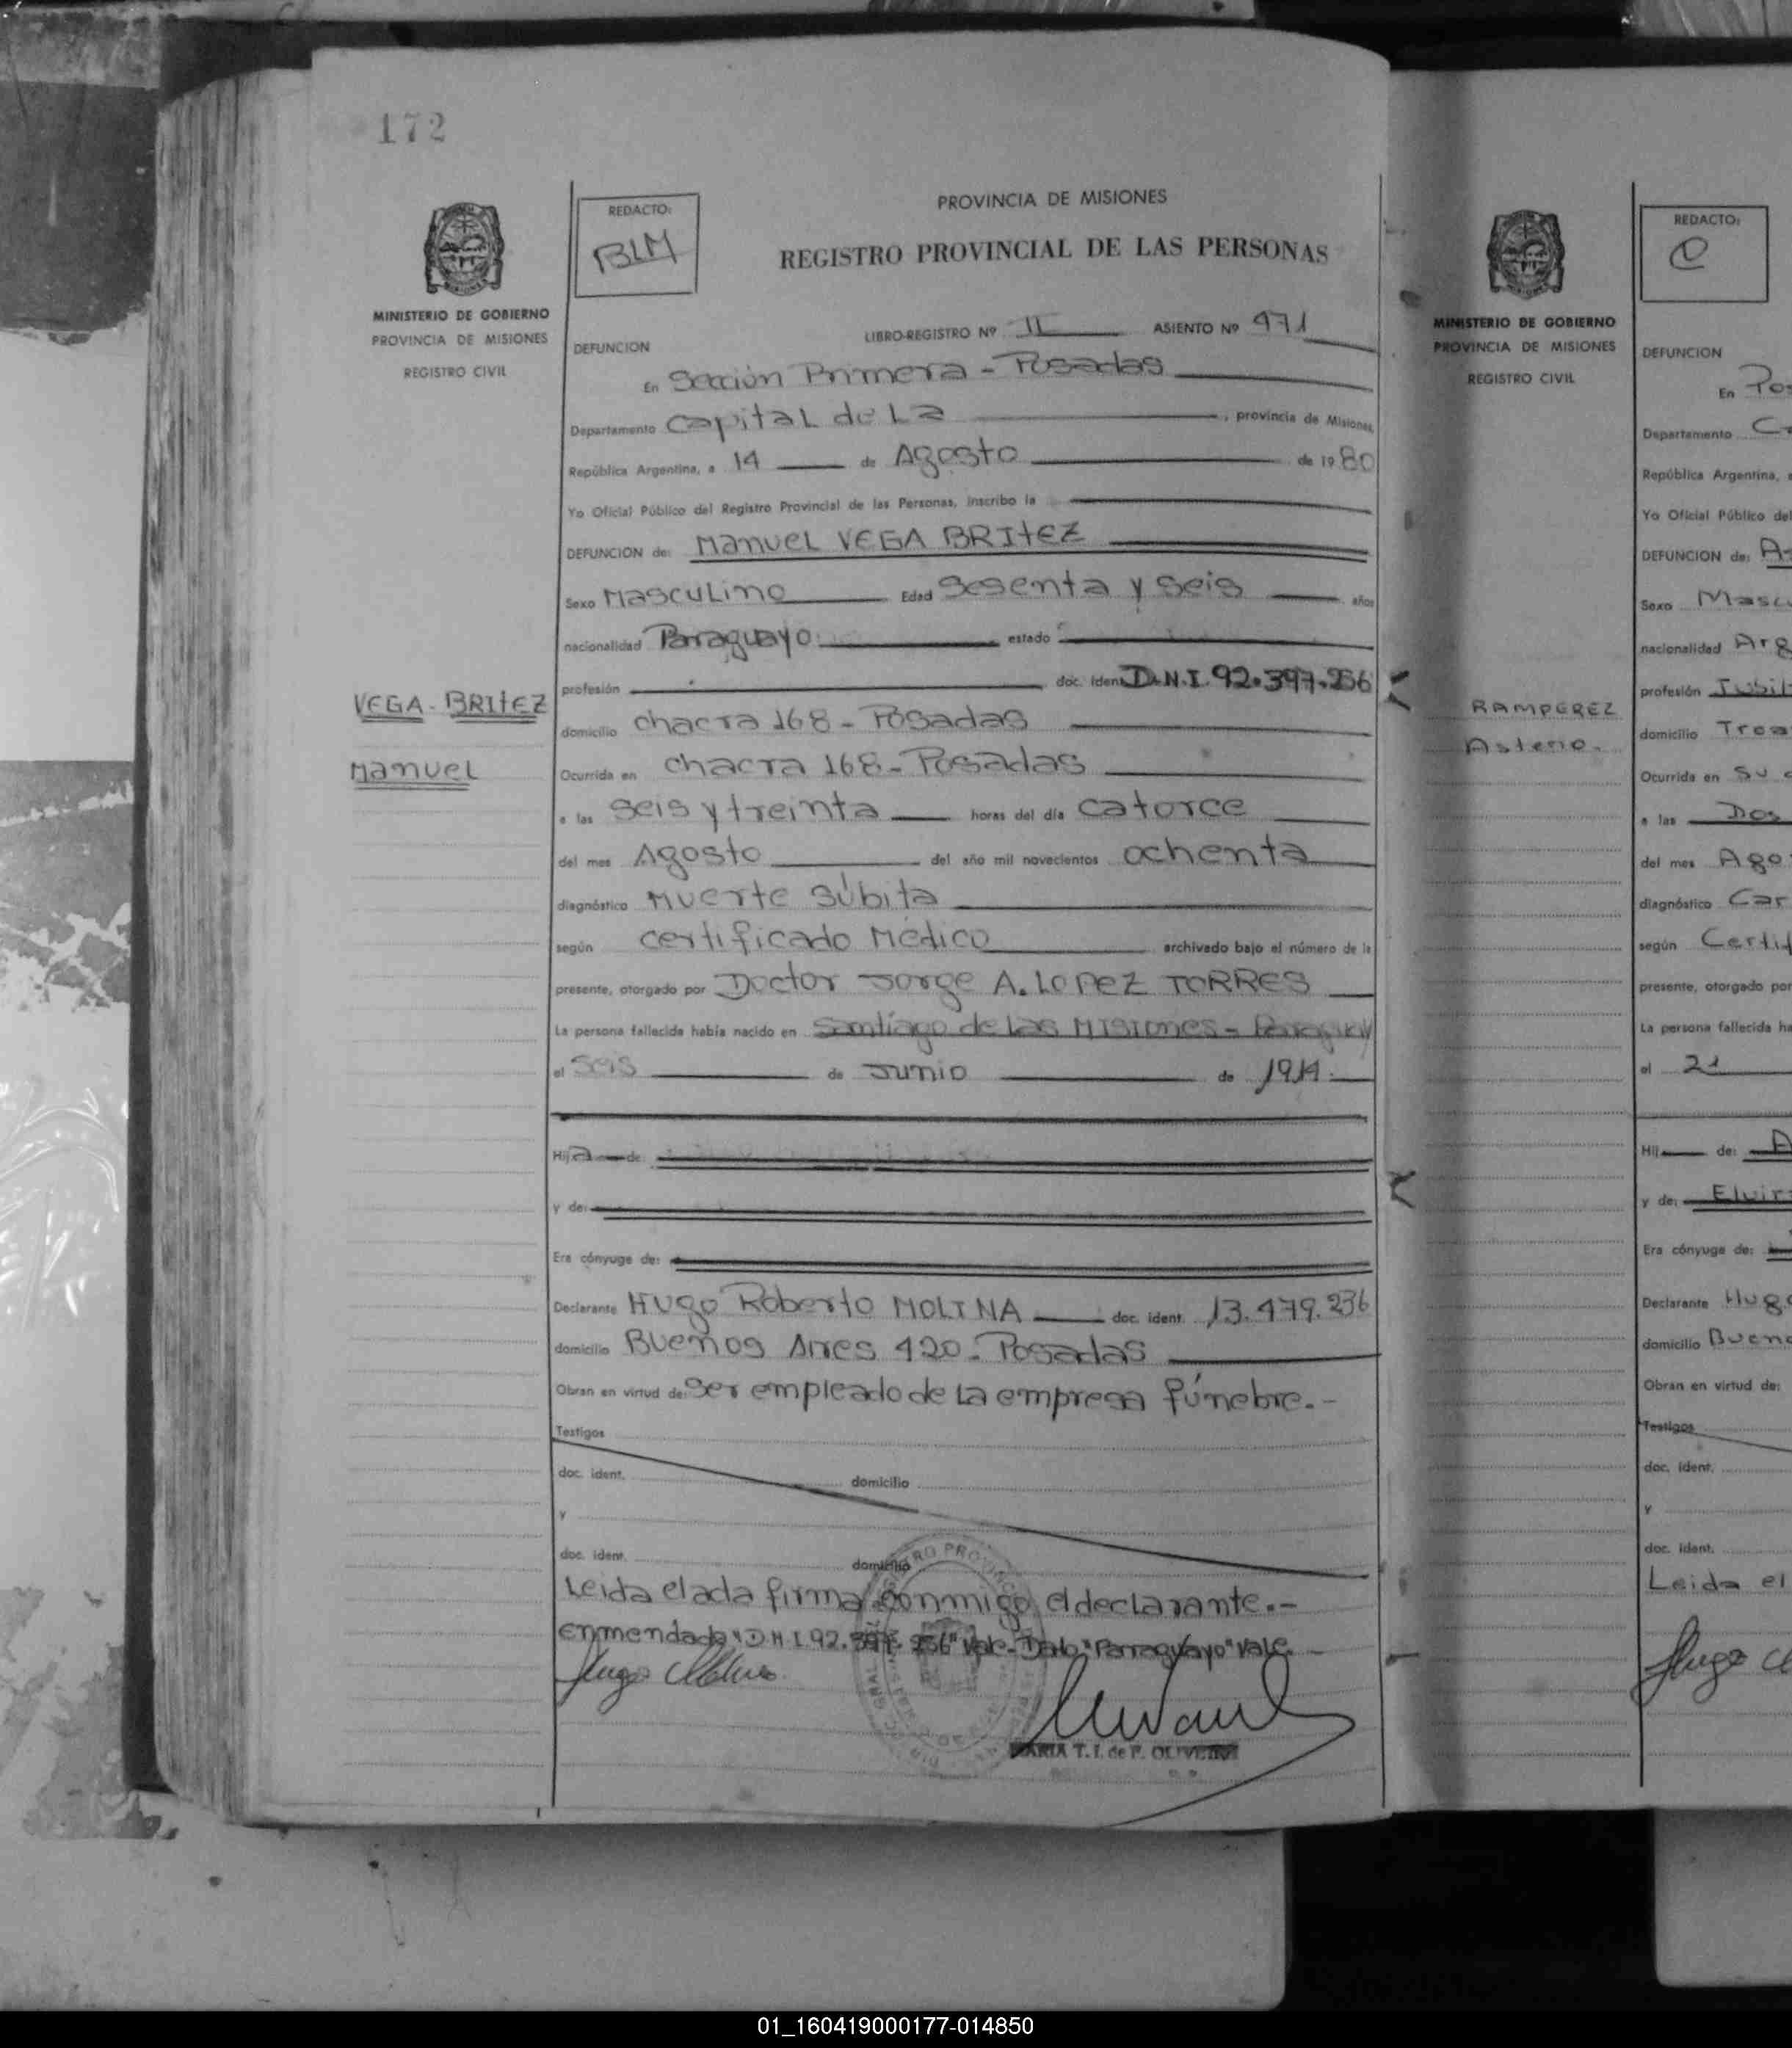 172
MINISTERIO DE GOBIERNO
PROVINCIA DE MISIONES
REGISTRO CIVIL
VEGA - BRITEZ
Manuel
REDACTO:
BLM
PROVINCIA DE MISIONES
REGISTRO PROVINCIAL DE LAS PERSONAS
LIBRO-REGISTRO Nº II ASIENTO Nº 471
DEFUNCION
En Sección Primera - Posadas
Departamento Capital de La , provincia de Misiones,
República Argentina, a 14 de Agosto de 1980
Yo Oficial Público del Registro Provincial de las Personas, inscribo la
DEFUNCION de: Manuel VEGA BRITEZ
Sexo Masculino Edad Sesenta y seis años
nacionalidad Paraguayo estado
profesión doc. ident. D.N.I. 92.397.256
domicilio chacra 168 - Posadas
Ocurrida en chacra 168 - Posadas
a las seis y treinta horas del día catorce
del mes Agosto del año mil novecientos ochenta
diagnóstico Muerte Súbita
según certificado Médico archivado bajo el número de la
presente, otorgado por Doctor Jorge A. LOPEZ TORRES
La persona fallecida había nacido en Santiago de las Misiones - Paraguay
el seis de Junio de 1914.
Hij de:
y de:
Era cónyuge de:
Declarante Hugo Roberto MOLINA doc. ident. 13.479.236
domicilio Buenos Aires 420 - Posadas
Obran en virtud de: ser empleado de la empresa fúnebre.-
Testigos
doc. ident. domicilio
y
doc. ident. domicilio
Leida el ada firma conmigo el declarante.-
Enmendado "D.N.I. 92.397.256" Vale - "Paraguayo" Vale.
MARIA T. I. de F. OLIVEIRA
MINISTERIO DE GOBIERNO
PROVINCIA DE MISIONES
REGISTRO CIVIL
RAMPEREZ
Asterio.
REDACTO:
DEFUNCION
En Pos
Departamento Ca
República Argentina, a
Yo Oficial Público del
DEFUNCION de: As
Sexo Mascu
nacionalidad Arg
profesión Jubil
domicilio
Ocurrida en su
a las Dos
del mes Ago
diagnóstico Car
según Certif
presente, otorgado por
La persona fallecida ha
el 21
Hij de: A
y de: Elvir
Era cónyuge de:
Declarante Hugo
domicilio Bueno
Obran en virtud de:
Testigos
doc. ident.
y
doc. ident.
Leida el
01_160419000177-014850